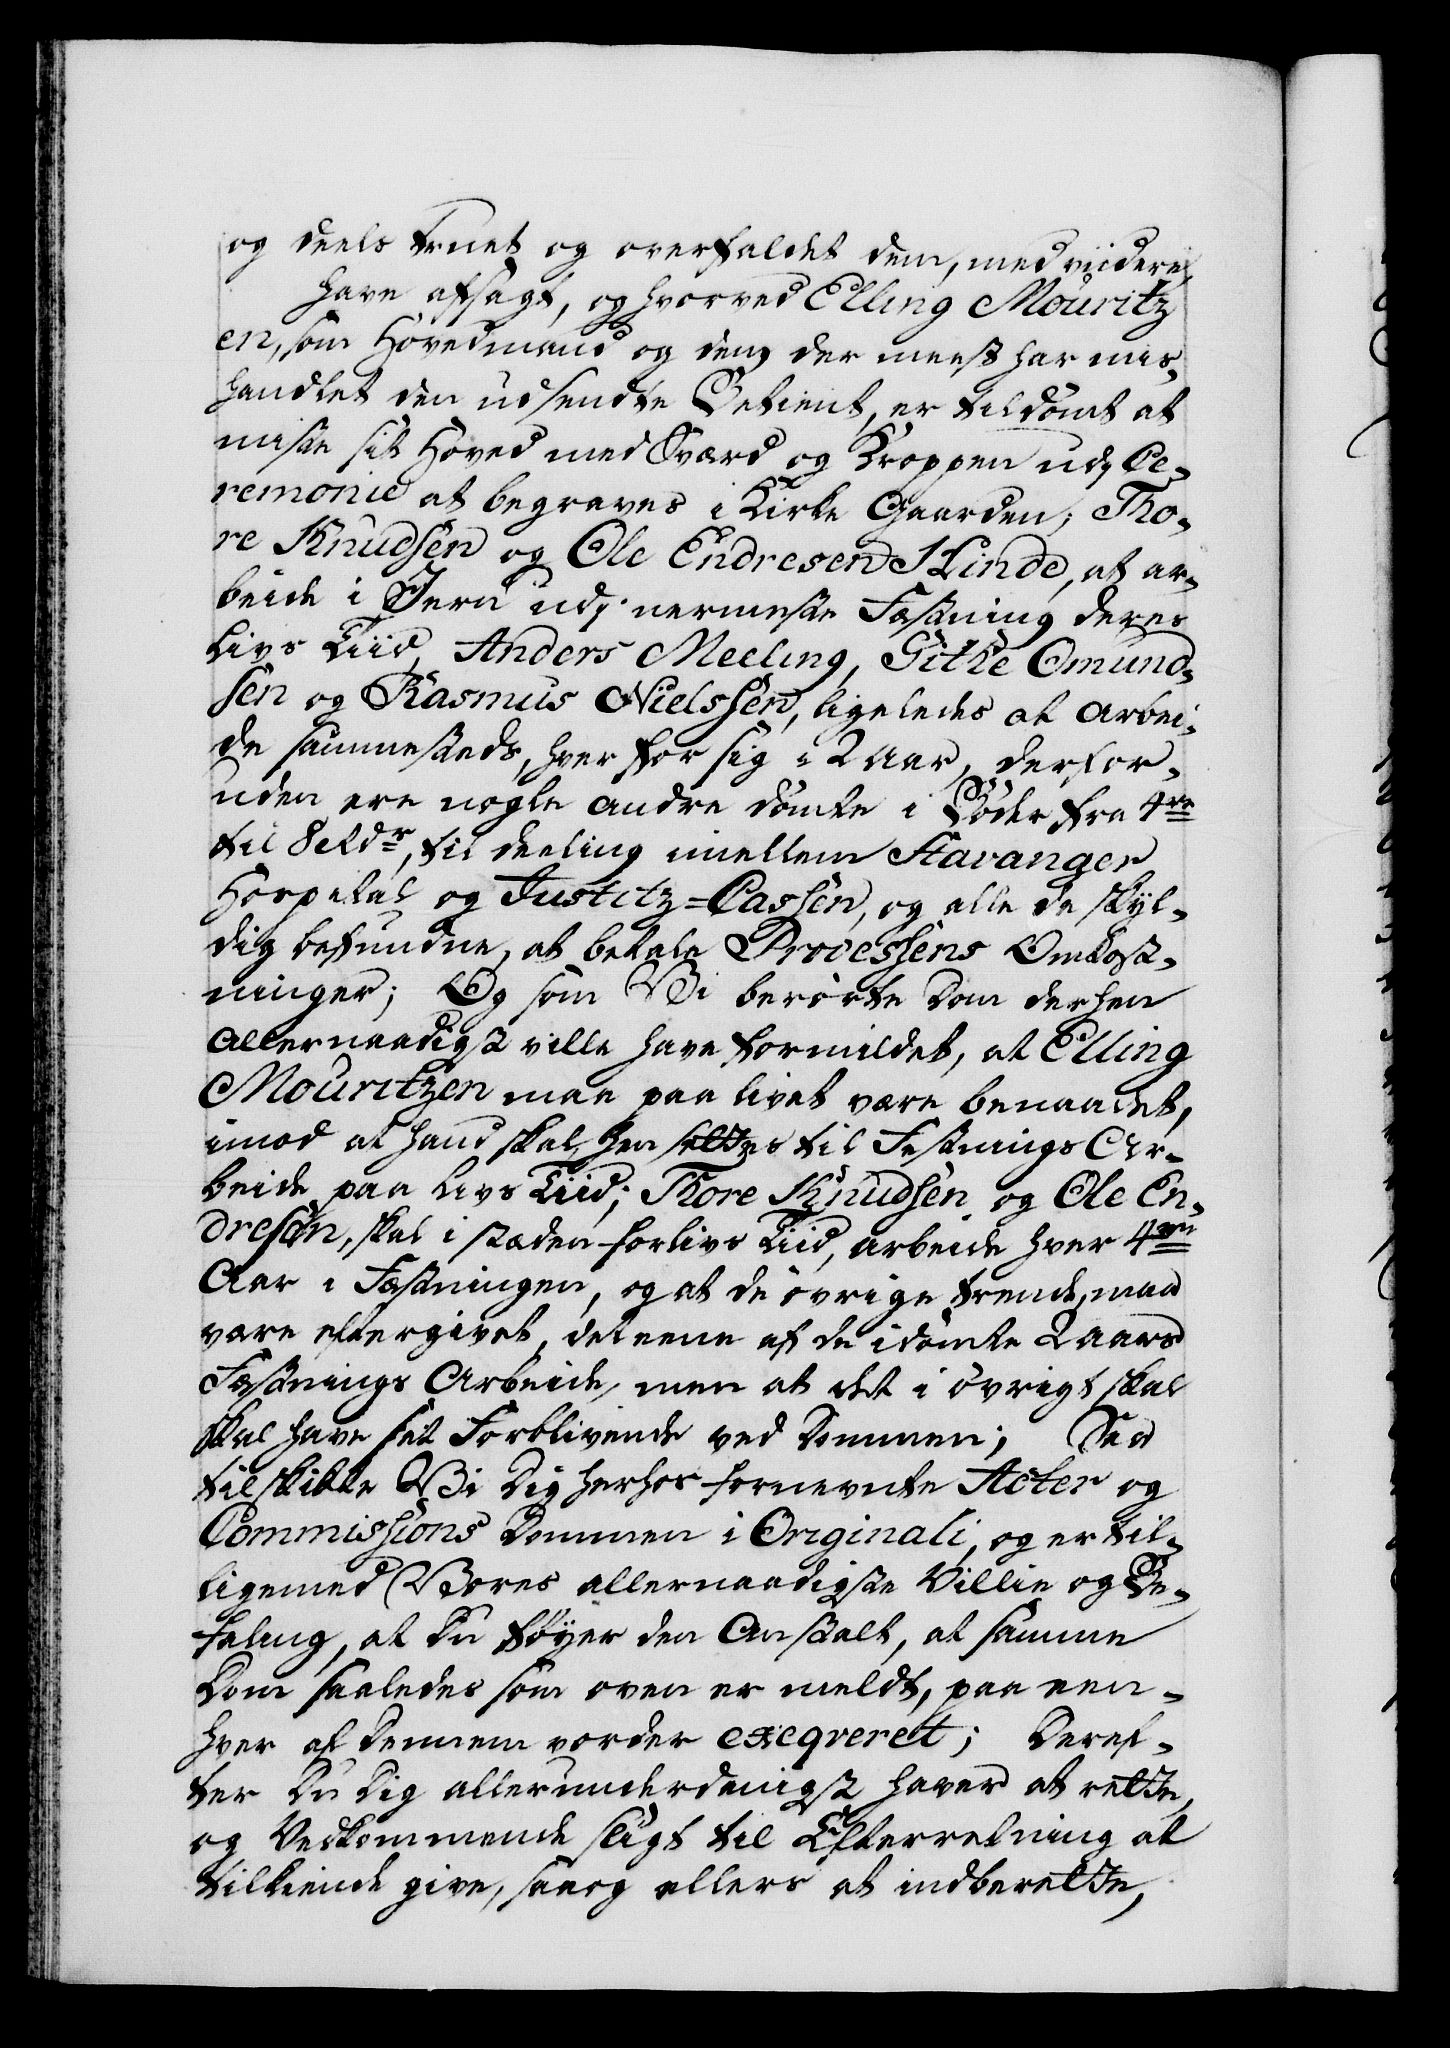 og deels truet og overfaldet dem, med viidere,
have afsagt, og hvorved Elling Mouritz
en, som Hovedmand og den der meest har mis-
handlet den udsendte Betient, er tildømt at
miste sit Hoved med Sværd og Kroppen uden Ce-
remonie at begraves i Kirke Gaarden; Tho-
re Knudsen og Ole Endresen Linde, at ar-
beide i Jern udj nermeste Fæstning deres
Livs Tiid, Anders Meeling, Githe Omund-
sen og Rasmus Nielssen, ligeledes at arbei-
de sammesteds, hver for sig i 2 Aar, derfor-
uden ere nogle andre dømte i Bøder fra 4re
til 8 Rdr, til deeling imellem Stavanger
Hospital og Justitz-Cassen, og alle de skyl-
dig befundne, at betale Processens Omkost-
ninger; Og som Vi berørte Dom derhen
allernaadigst ville have formildet, at Elling
Mouritzen maa paa livet være benaadet,
imod at hand skal hen settes til Festnings Ar-
beide paa Livs Tiid; Thore Knudsen og Ole En-
dresen, skal i stæden for livs Tiid, arbeide hver 4re
Aar i Fæstningen, og at de øvrige trende, maa
være eftergivet, det eene af de idømte 2 Aars
Fæstnings Arbeide, men at det i øvrigt skal
skal have sit Forblivende ved Dommen; Saa
tilskikke Vi Dig herhos fornevnte Acter og
Commissions Dommen i Originali, og er til-
ligemed Vores allernaadigste Villie og Be-
faling, at Du føyer den Anstalt, at samme
Dom saaledes som oven er meldt, paa een-
hver af Dennem vorder exeqveret; Deref-
ter Du Dig allerunderdanigst haver at rette,
og Vedkommende sligt til Efterretning at
tilkiende give, saa og ellers at indberette,